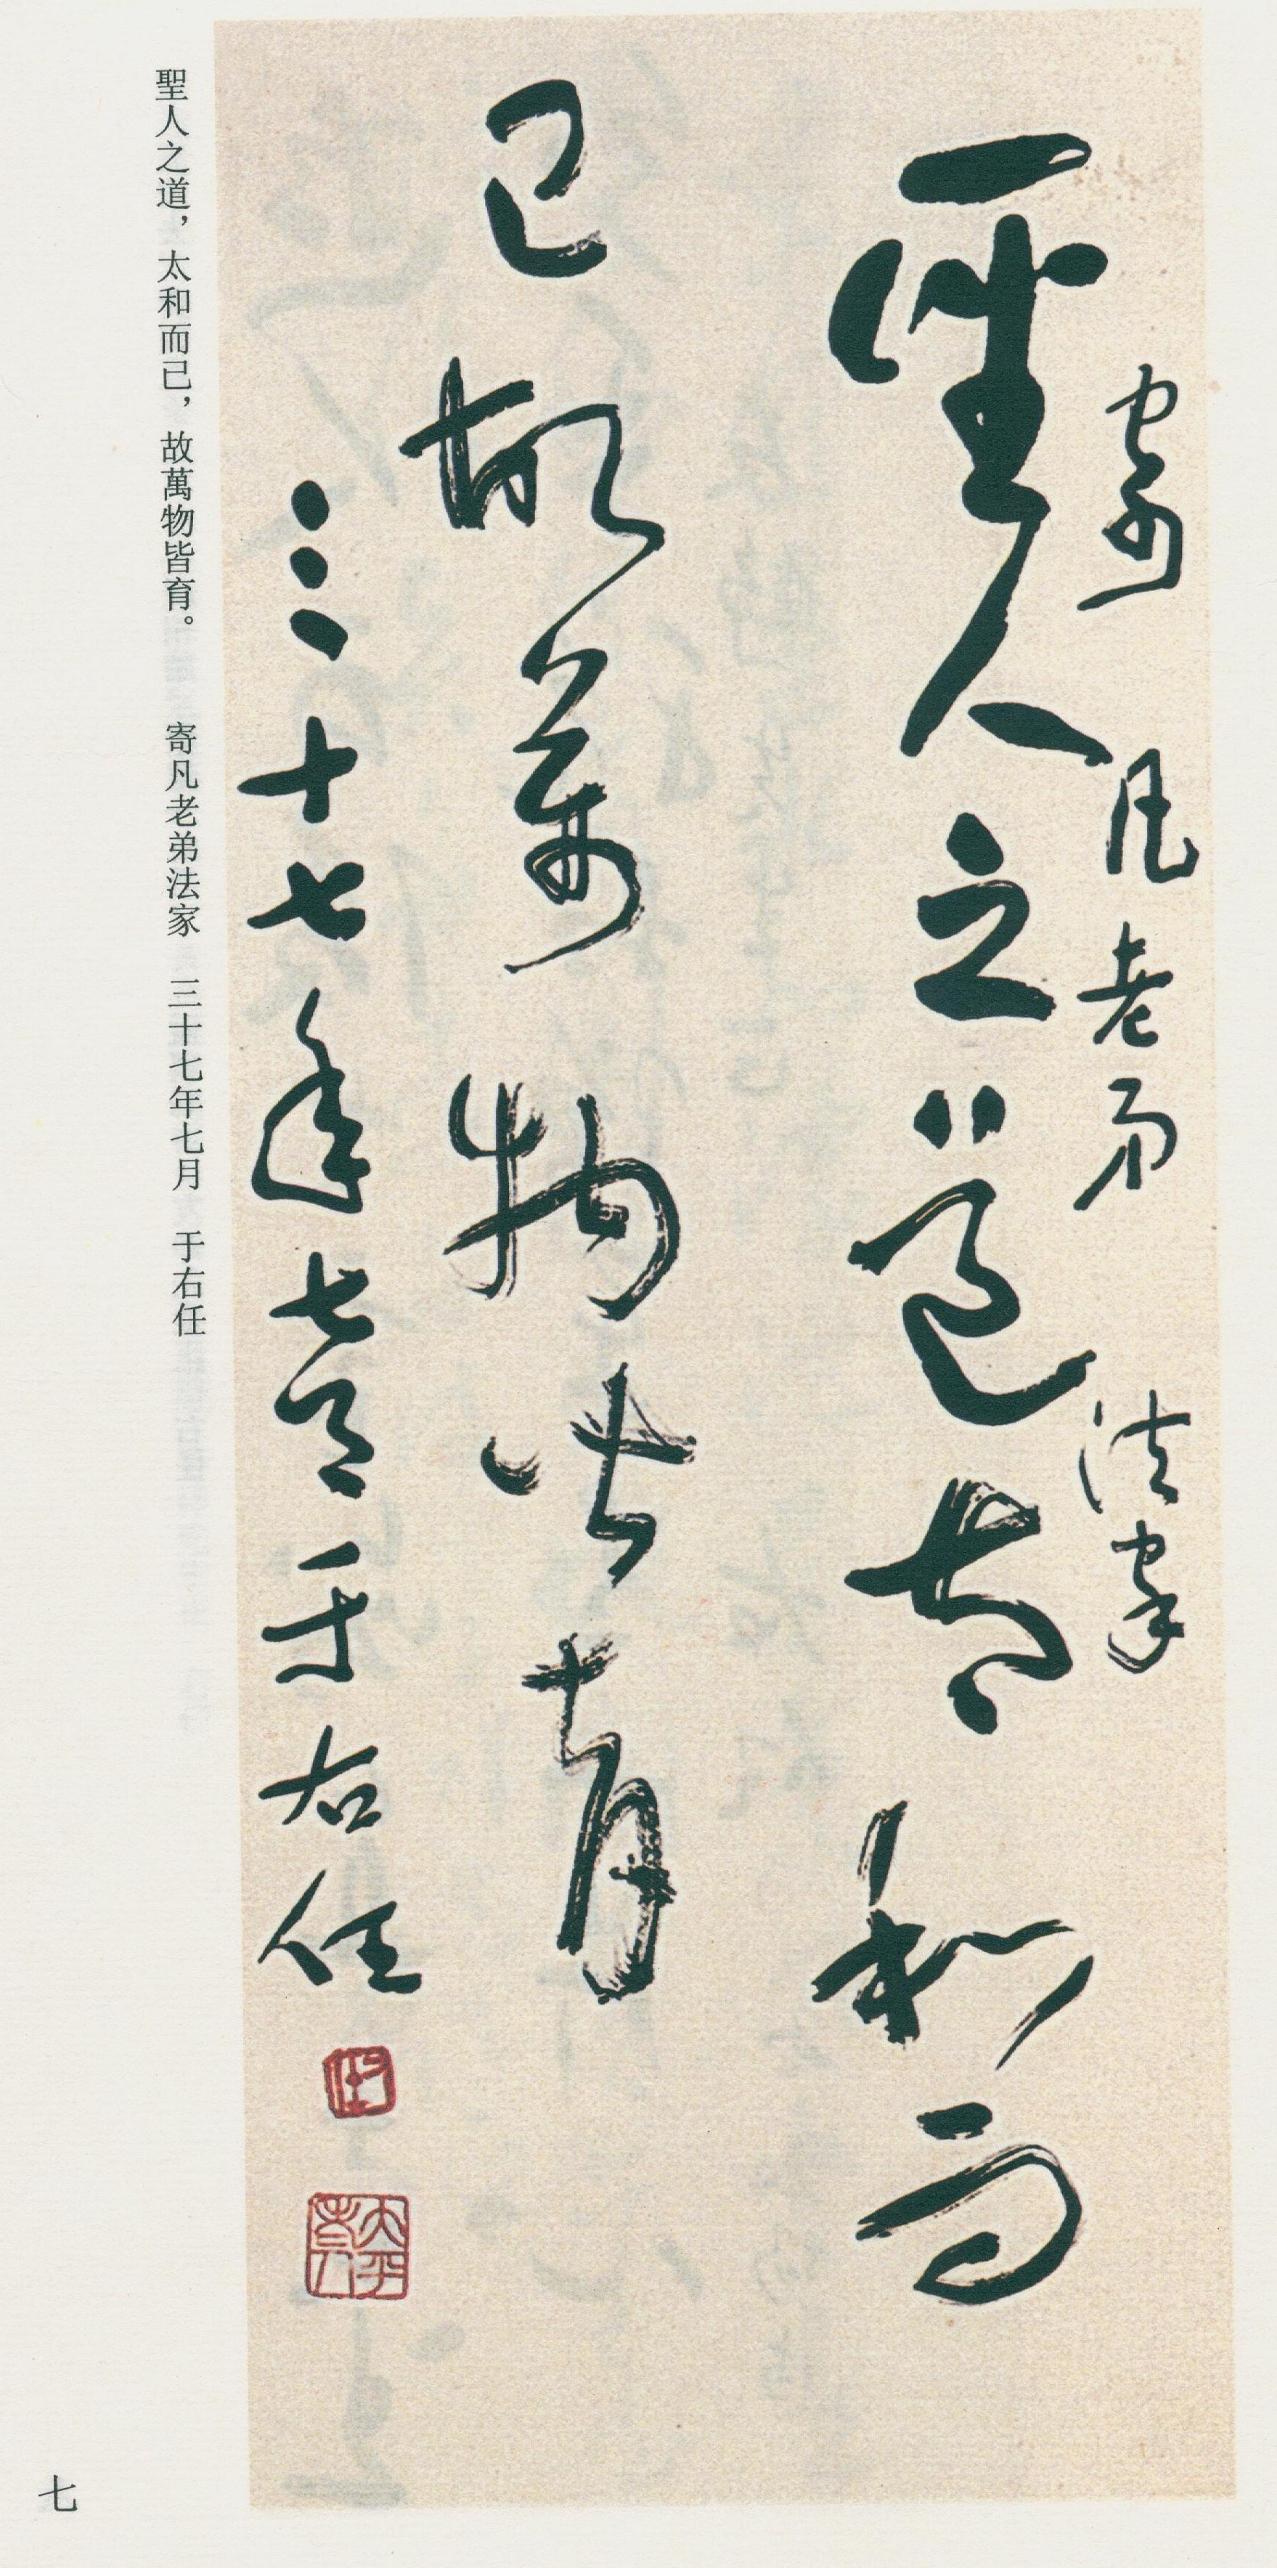 寄凡老弟法家
聖人之道太和而
已故萬物皆育
三十七年七月于右任
右任
太平老人
聖人之道，太和而已，故萬物皆育。　寄凡老弟法家　三十七年七月　于右任
七